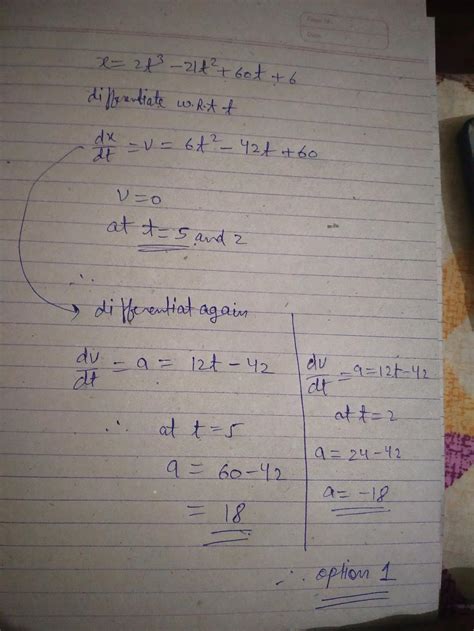 x = 2t³ - 21t² + 60t + 6
differentiate w.R.t t
dx/dt = v = 6t² - 42t + 60
v = 0
at t = 5 and 2
∴
differentiat again
dv/dt = a = 12t - 42
∴ at t = 5
a = 60 - 42
= 18
dv/dt = a = 12t - 42
at t = 2
a = 24 - 42
a = -18
∴ option 1